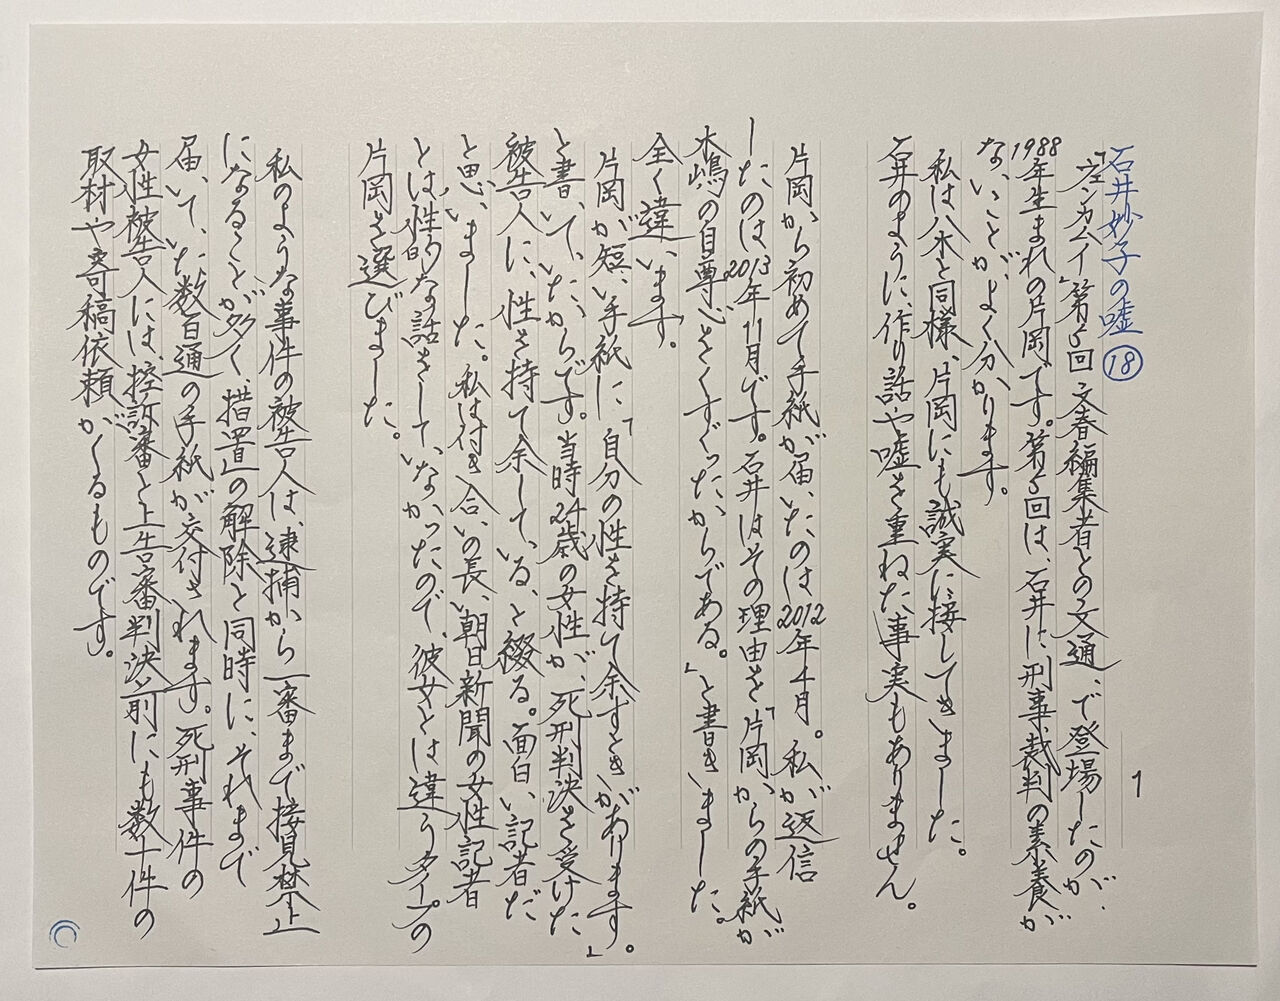 1
石井妙子の嘘⑱
『ヴェンカイ』第5回 文春編集者との文通、で登場したのが、
1988年生まれの片岡です。第5回は、石井に刑事裁判の素養が
ないことがよく分かります。
私は八木と同様、片岡にも誠実に接してきました。
石井のように、作り話や嘘を重ねた事実もありません。
片岡から初めて手紙が届いたのは2012年4月。私が返信
したのは2013年11月です。石井はその理由を「片岡からの手紙が
木嶋の自尊心をくすぐったからである。」と書きました。
全く違います。
片岡が短い手紙に「自分の性を持て余すときがあります。」
と書いていたからです。当時24歳の女性が、死刑判決を受けた
被告人に、性を持て余している、と綴る。面白い記者だ
と思いました。私は付き合いの長い朝日新聞の女性記者
とは性的な話をしていなかったので、彼女とは違うタイプの
片岡を選びました。
私のような事件の被告人は、逮捕から一審まで接見禁止
になることが多く、措置の解除と同時に、それまで
届いていた数百通の手紙が交付されます。死刑事件の
女性被告人には、控訴審と上告審判決前にも数十件の
取材や寄稿依頼がくるものです。